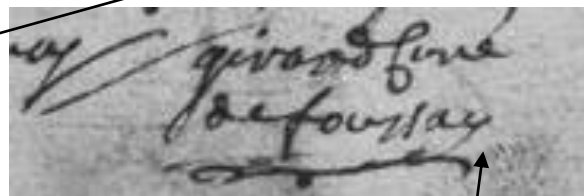 girard Cure
de foussay